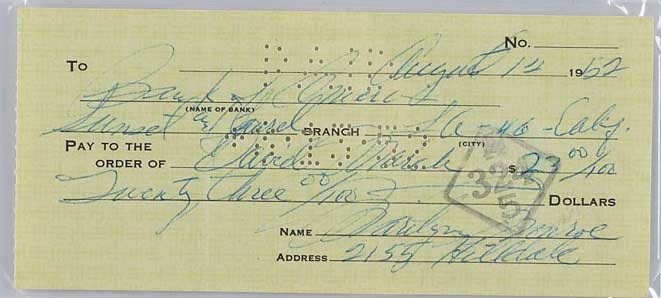 No.
To August 14 1952
Bank of America
(NAME OF BANK)
Sunset & Laurel BRANCH LA - 46 - Calif.
(CITY)
PAY TO THE
ORDER OF David March $ 23 00/100
Twenty three 00/100 DOLLARS
NAME Marilyn Monroe
ADDRESS